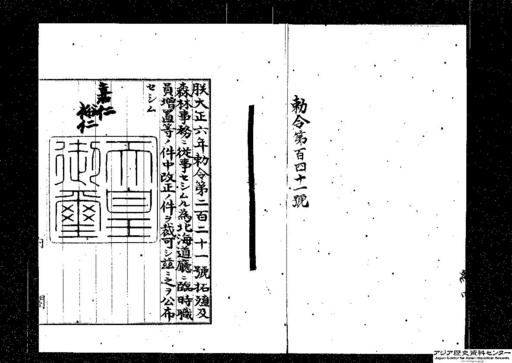 勅令第百四十一號
朕大正六年勅令第二百二十一號拓殖及
森林事務ニ從事セシムル為北海道廳ニ臨時職
員增置等ノ件中改正ノ件ヲ裁可シ茲ニ之ヲ公布
セシム
嘉仁
裕仁
天皇
御璽
内閣
アジア歴史資料センター
Japan Center for Asian Historical Records